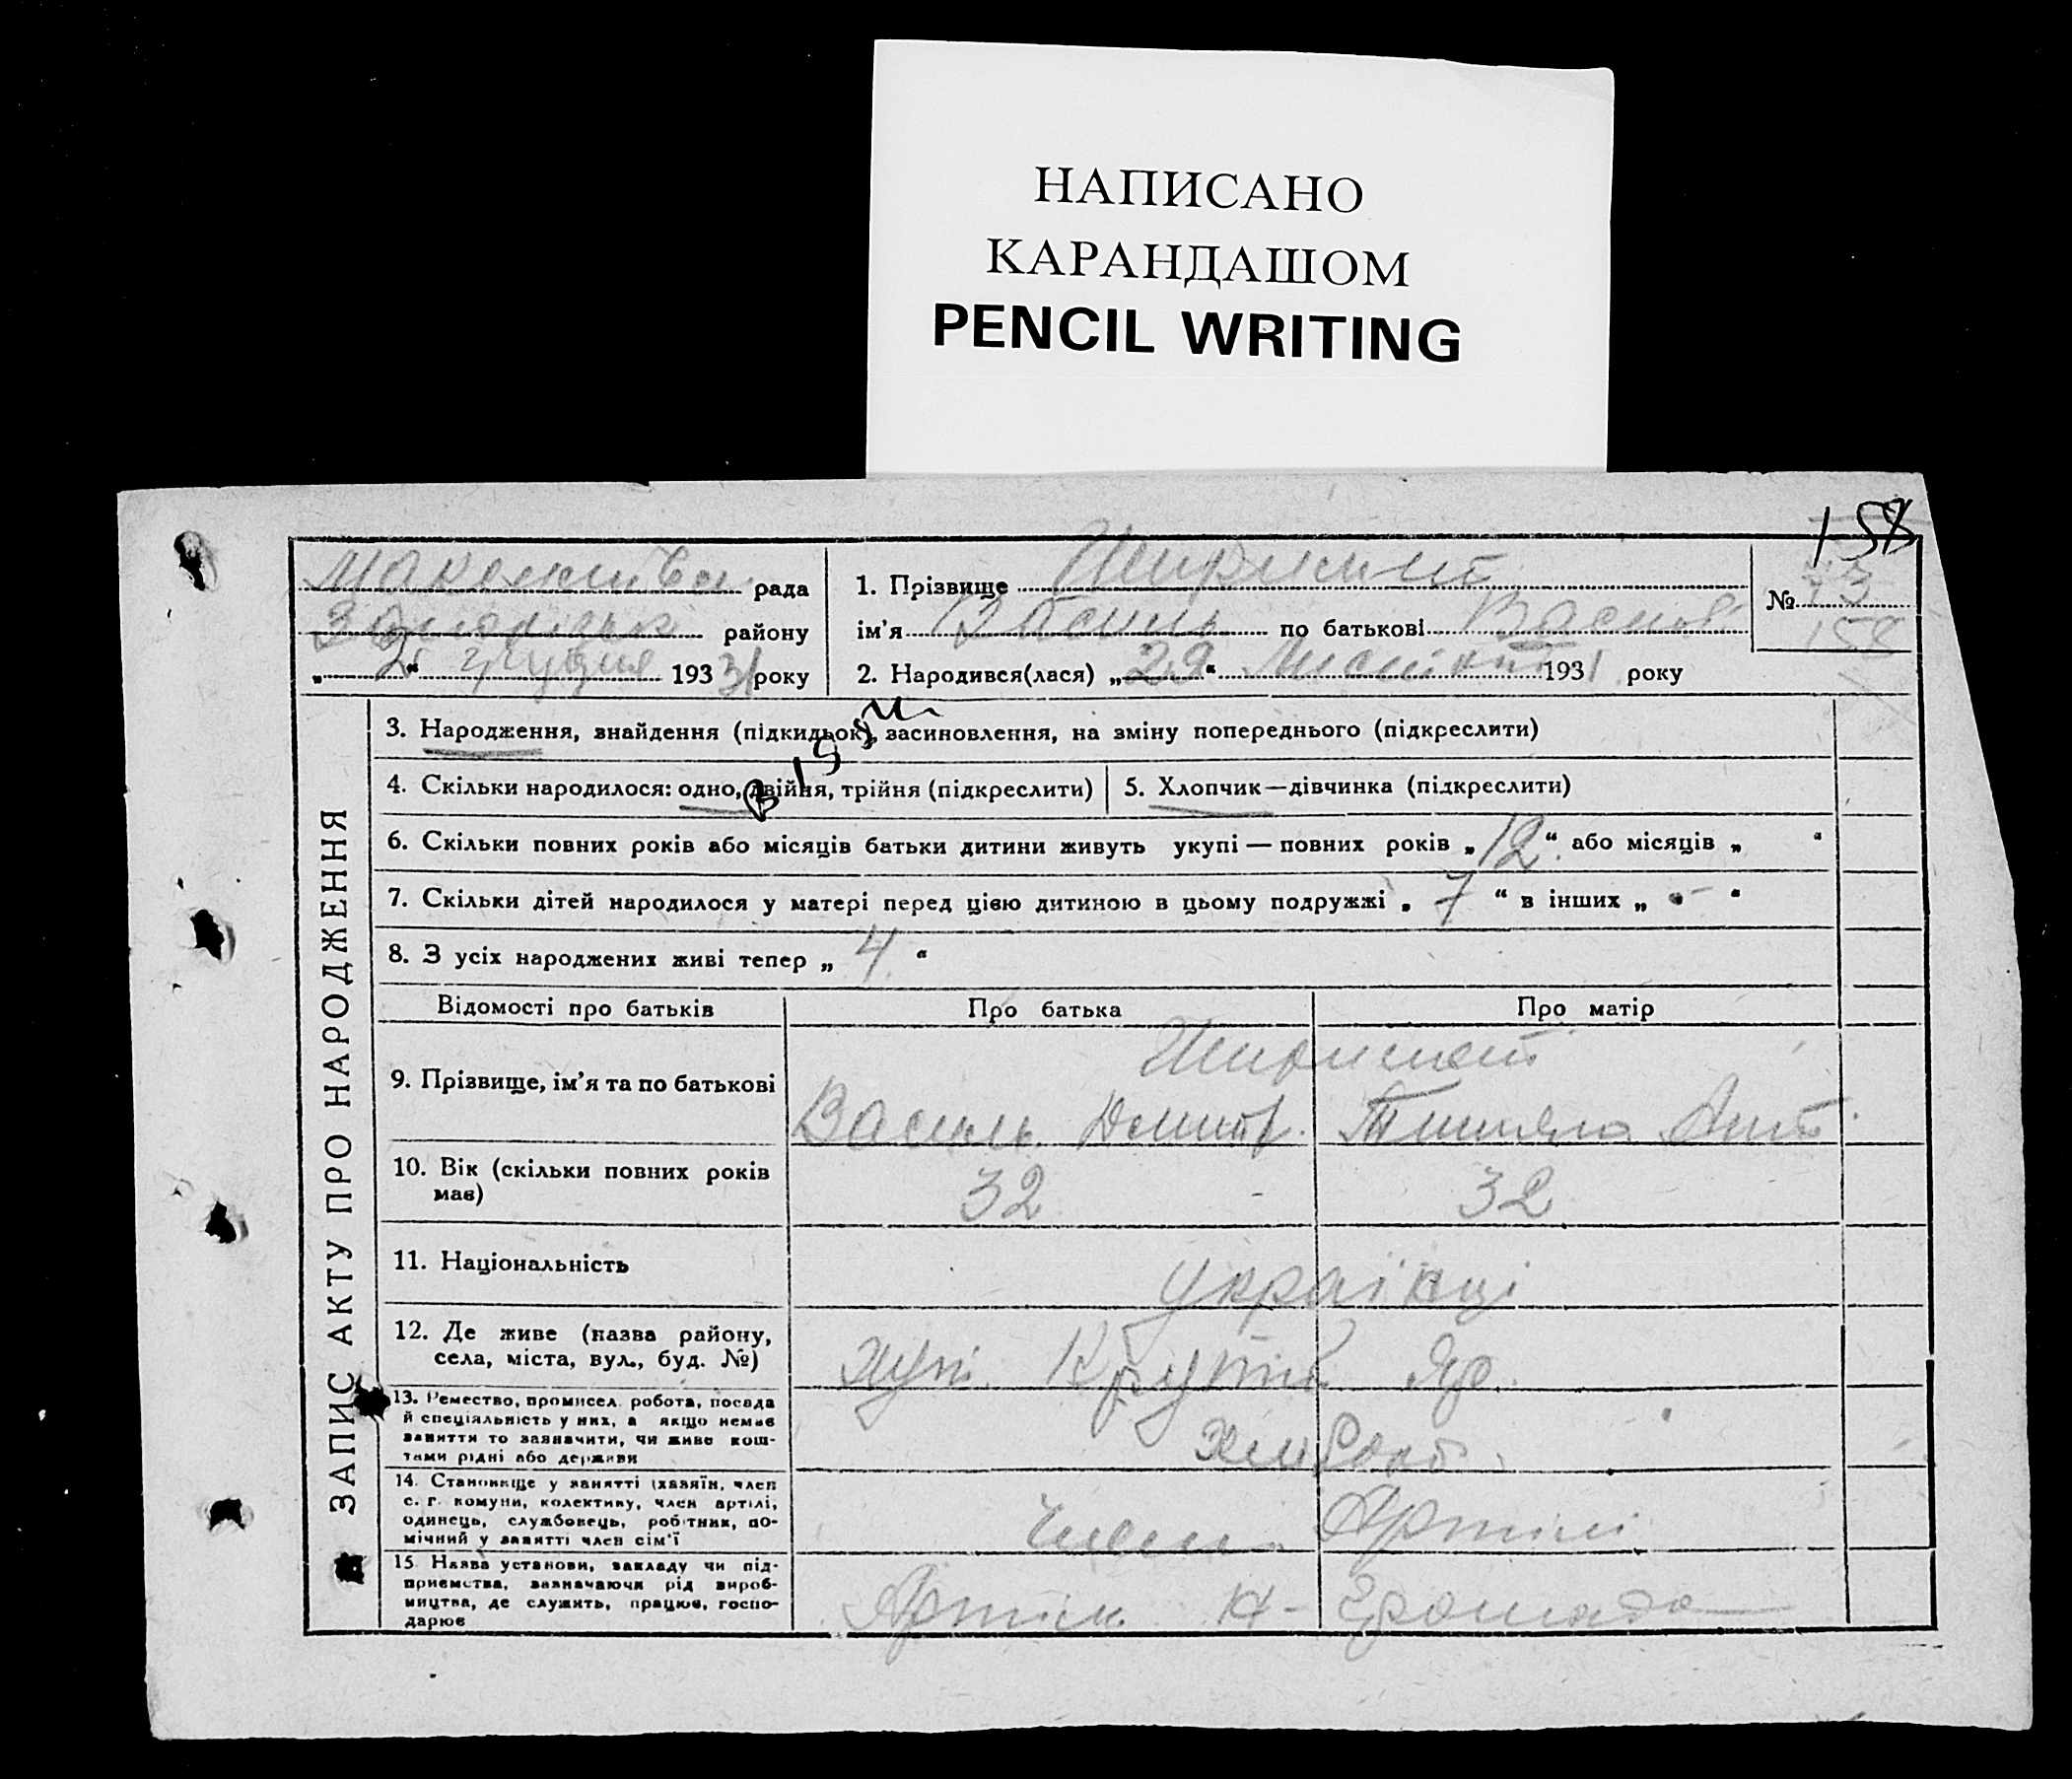 НАПИСАНО
КАРАНДАШОМ
PENCIL WRITING
158
рада
1. Прізвище
№ 73
району
ім’я Василь по батькові Васильов
158
„ 2 “ грудня 1931 року
2. Народився(лася) „ 29 “ Листопад 1931 року
ЗАПИС АКТУ ПРО НАРОДЖЕННЯ
3. Народження, знайдення (підкидьок), засиновлення, на зміну попереднього (підкреслити)
4. Скільки народилося: одно, двійня, трійня (підкреслити)
5. Хлопчик—дівчинка (підкреслити)
6. Скільки повних років або місяців батьки дитини живуть укупі — повних років „ 12 “ або місяців „ “
7. Скільки дітей народилося у матері перед цією дитиною в цьому подружжі „ 7 “ в інших „ - “
8. З усіх народжених живі тепер „ 4 “
Відомості про батьків
Про батька
Про матір
9. Прізвище, ім’я та по батькові
Василь Дмитр.
10. Вік (скільки повних років має)
32
32
11. Національність
українці
12. Де живе (назва району, села, міста, вул., буд. №)
Хут. Крутий Яр.
13. Ремество, промисел, робота, посада
й спеціяльність у них, а якщо немає
заняття то зазначити, чи живе кош-
тами рідні або держави
Хлібороб
14. Становище у занятті (хазяїн, член
с. г. комуни, колективу, член артілі,
одинець, службовець, робітник, по-
мічний у занятті член сім’ї
Член Артілі
15. Назва установи, закладу чи під-
приємства, зазначаючи рід вироб-
ництва, де служить, працює, госпо-
дарює
Артіль Н-Громада